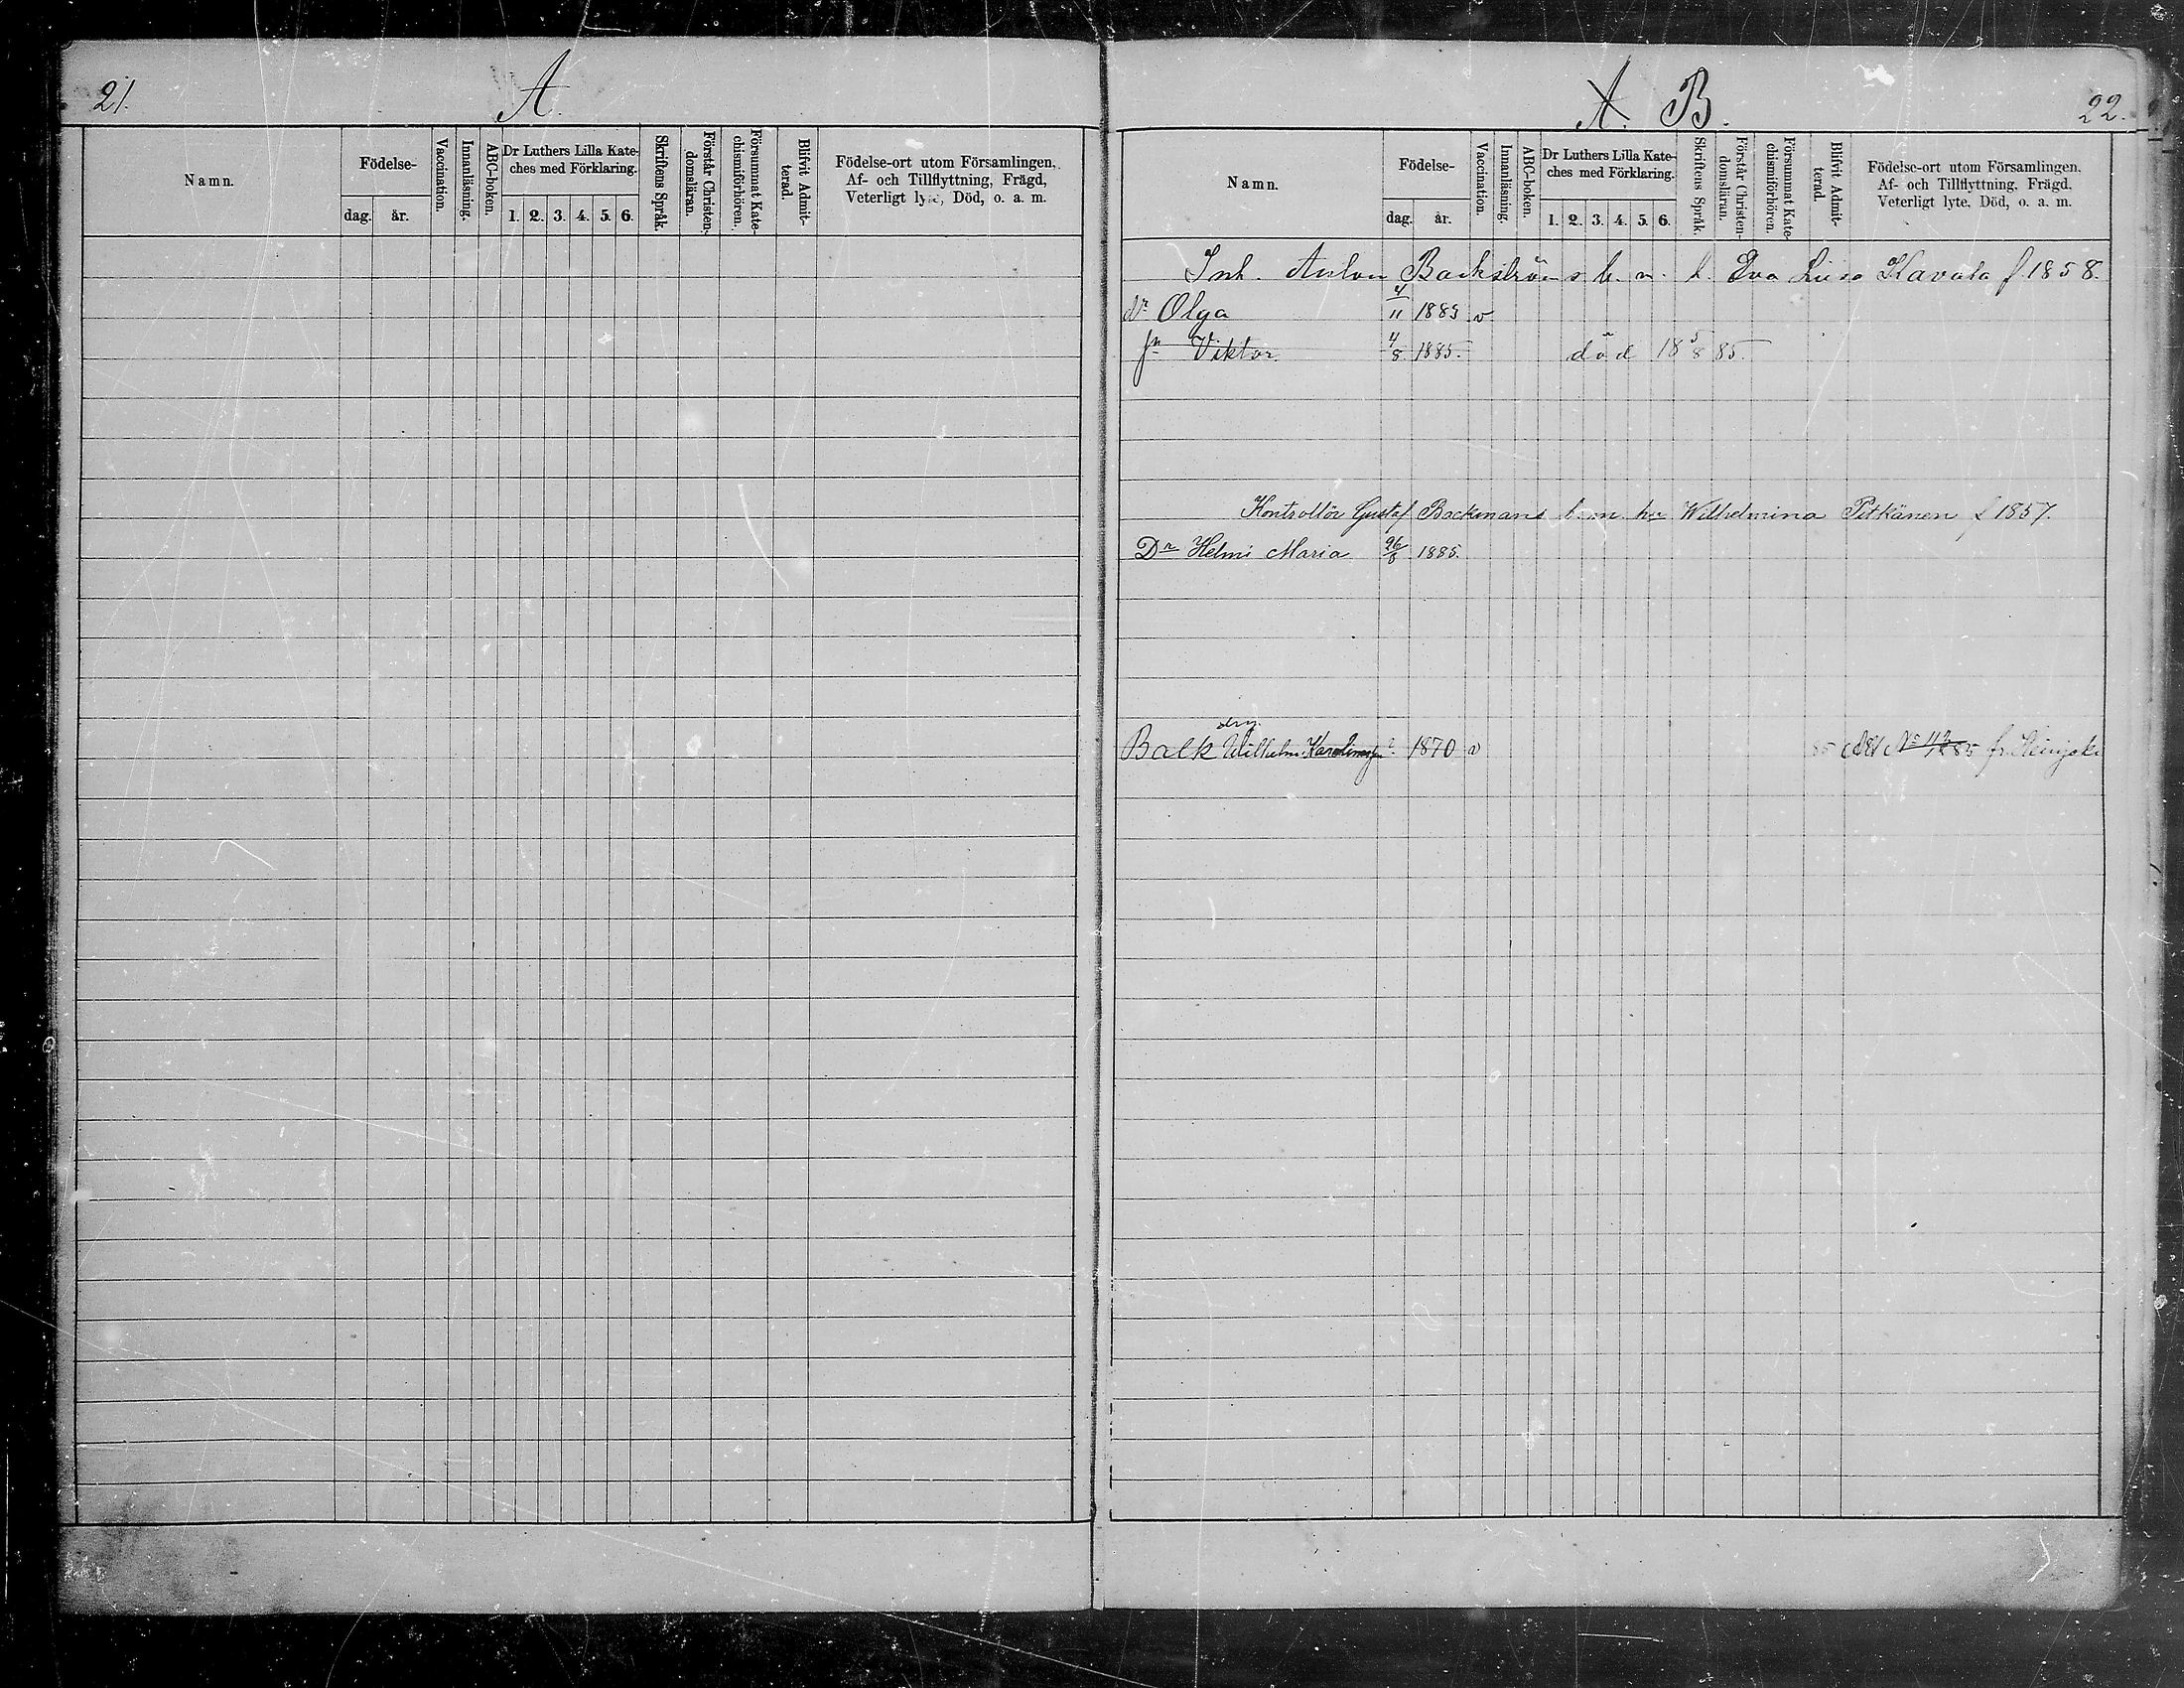 21.
A.
Namn.
Födelse-
dag.
år.
Vaccination.
Innanläsning.
ABC-boken.
Dr Luthers Lilla Kate-
ches med Förklaring.
1. 2. 3. 4. 5. 6.
Skriftens Språk.
Förstår Christen-
domsläran.
Försummat Kate-
chismiförhören.
Blifvit Admit-
terad.
Födelse-ort utom Församlingen,
Af- och Tillflyttning, Frägd,
Veterligt lyte, Död, o. a. m.
A. B.
22.
Namn.
Födelse-
dag.
år.
Vaccination.
Innanläsning.
ABC-boken.
Dr Luthers Lilla Kate-
ches med Förklaring.
1. 2. 3. 4. 5. 6.
Skriftens Språk.
Förstår Christen-
domsläran.
Försummat Kate-
chismiförhören.
Blifvit Admit-
terad.
Födelse-ort utom Församlingen,
Af- och Tillflyttning, Frägd,
Veterligt lyte, Död, o. a. m.
Inh. Anton Backströms b. m. h. Eva Lisa Kavala f 1858.
dr Olga 4/11 1883 v
sn Viktor 4/8 1885. död 18 5/8 85.
Kontrollör Gustaf Backmans b. m. hu Wilhelmina Pitkänen f 1857.
Dr Helmi Maria 26/8 1885.
Balk Wilhelm 1870 v